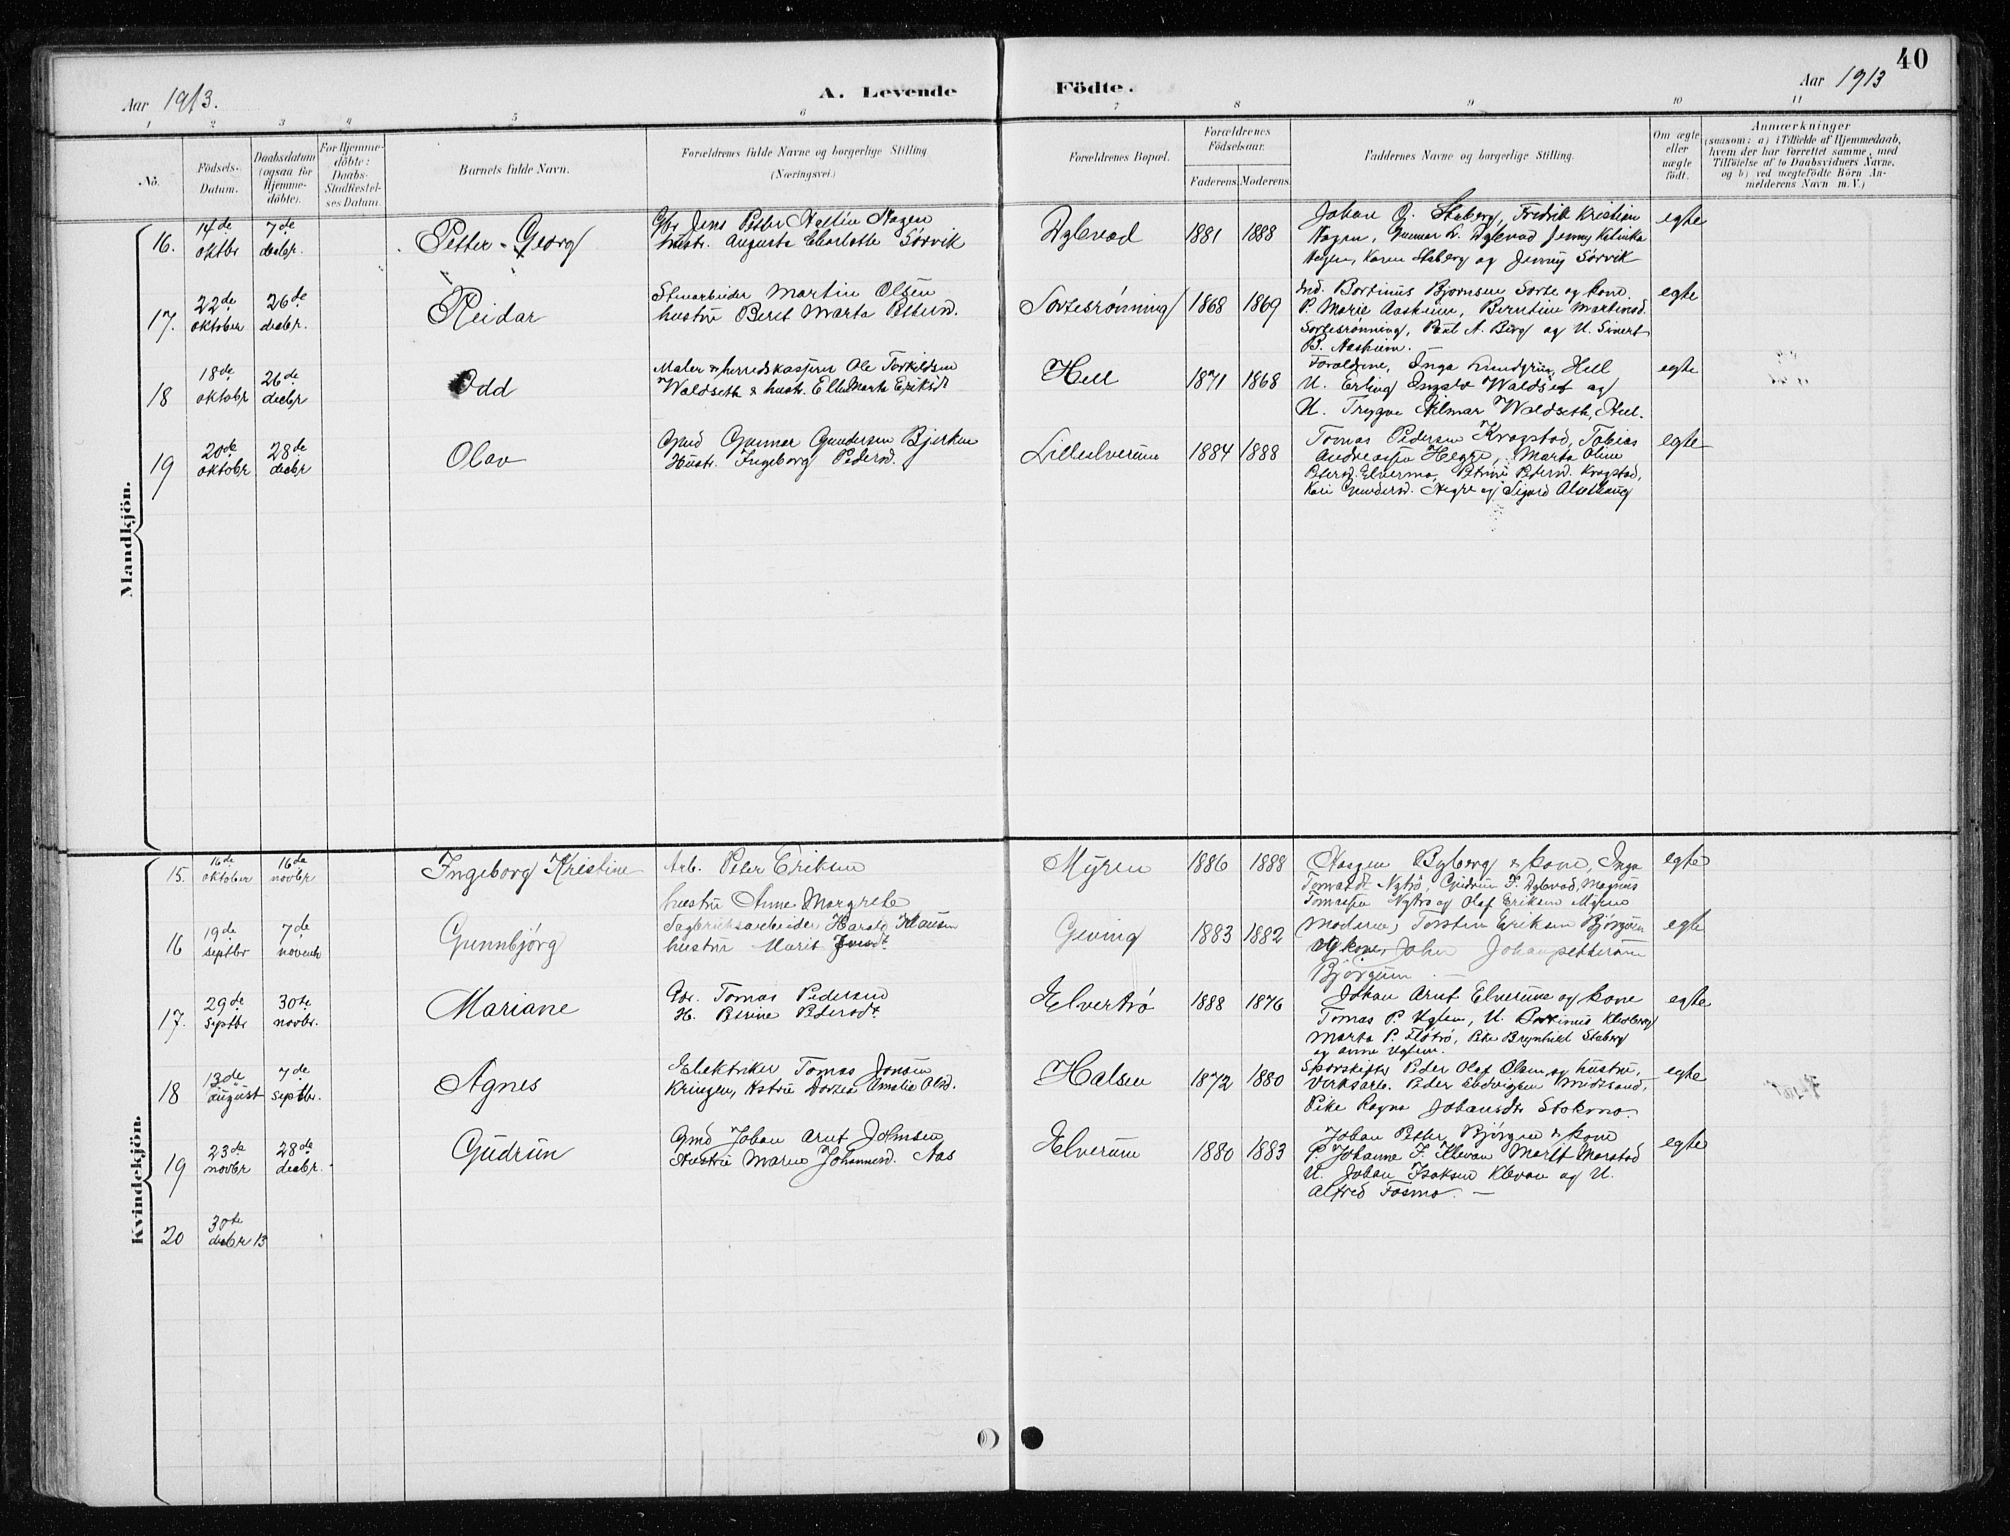 40
Aar 1913.
A. Levende Födte.
Aar 1913
1 2 3 4 5 6 7 8 9 10 11
No.
Födsels-Datum.
Daabsdatum (ogsaa for Hjemme-döbte).
For Hjemme-döbte: Daabs-Stadfæstel-ses Datum.
Barnets fulde Navn.
Forældrenes fulde Navne og borgerlige Stilling (Næringsvei.)
Forældrenes Bopæl.
Forældrenes Födselsaar.
Faderens. Moderens.
Faddernes Navne og borgerlige Stilling.
Om ægte eller uægte födt.
Anmærkninger
(saasom: a) i Tilfælde af Hjemmedaab, hvem der har forrettet samme, med Tilföielse af to Daabsvidners Navne, og b) ved uægtefödte Börn An-melderens Navn m. V.)
Mandkjön.
16. 14de oktbr 7de desbr. Petter Georg
Gbr Jens Petter Hagen
hustr. Augusta Charlotte Sörvik
Dyblvad 1881 1888
Johan O. Staberg, Fredrik Kristian
Hagen, Gunnar Dyblvad Jenny
Hagen, Karen Staberg og Jenny Sörvik
egte
17. 22de oktober 26de desbr. Reidar
Stenarbeider Martin Olsen
hustru Beret Marta Petersd.
Sortesrønning 1868 1869
Ind. Bortinus Bjornsen Sorte og kone
P. Marie Aasheim, Berntine Martinsd.
Sortesrønning, Paul A. Berg og U. Sivert
B. Aasheim.
egte
18 18de oktobr 26de desbr Odd
Maler & herredskasserer Ole Torkildsen
Waldseth & hustr. Elle Marta Eriksdt
Hell 1871 1868
Foreldrene, Inga Lundgrün, Hell
U. Erling Waldset og
U. Trygve Hilmar Waldseth, Hell.
egte
19 20de oktobr 28de desbr Olav
Gmd Gunnar Gundersen Bjerkan
Hustr. Ingeborg Pedersd.
Lilleelverum 1884 1888
Tomas Pedersen Kragstad, Tobias
Andreassen Hegre, Marta Oline
Petersd. Elvermo, Petrine Petersd. Kragstad,
Kari Gundersd. Hegre og Sigurd Alsthaug
egte
Kvindekjön.
15. 16de oktober 16de novbr Ingeborg Kristine
Arb. Peter Eriksen
hustru Anne Margrete
Myren 1886 1888
Haagen Byberg & kone, Inga
Tomasdt Nytrö, Gudrun F. Dyblvad, Magnus
Tomassen Nytrö og Olaf Eriksen Myren
egte
16 19de septbr 7de novembr Gunnbjörg
Sagbruksarbeider Harald Hansen
hustru Marit
Geving 1883 1882
Moderen, Torsten Eriksen Björgum
og kone, John Johanpettersen
Björgum
egte
17. 29de septbr 30te novbr. Mariane
Gbr. Tomas Pedersen
H. Petrine Pedersdt
Elvertrö 1888 1876
Johan Arnt Elverum og kone
Tomas P. Uglen, U. Klosberg
Marta P. Flötrö, Pike Brynhild Staberg
og Anne Uglen.
egte
18 13de august 7de septbr. Agnes
Elektriker Tomas Jonsen
Kringen, Hstru Dortea Amalie Olsd.
Halsen 1872 1880
Sporskifter Peder Olaf Olsen og hustru,
Verksarb. Peder Ludvigsen Midtsand,
Pike Ragna Johansdtr Stokmo.
egte
19 23de novbr 28de desbr. Gudrun
Gmd Johan Arnt Johnsen
Hustru Maren Johannesd. Aas
Elverum 1880 1883
Johan Petter Björgen & kone
P. Johanne F. Klevan Marit Marstad
U. Johan Isaksen Klevan og U.
Alfred Fosmo. —
egte
20 30te desbr 13